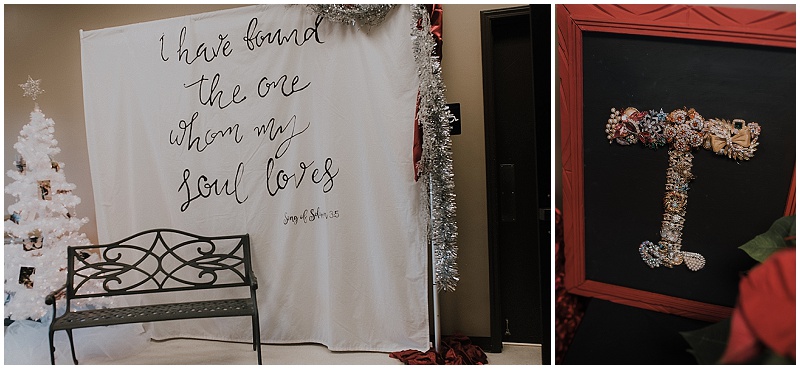 I have found
the one
whom my
soul loves
Song of Solomon 3:5
T